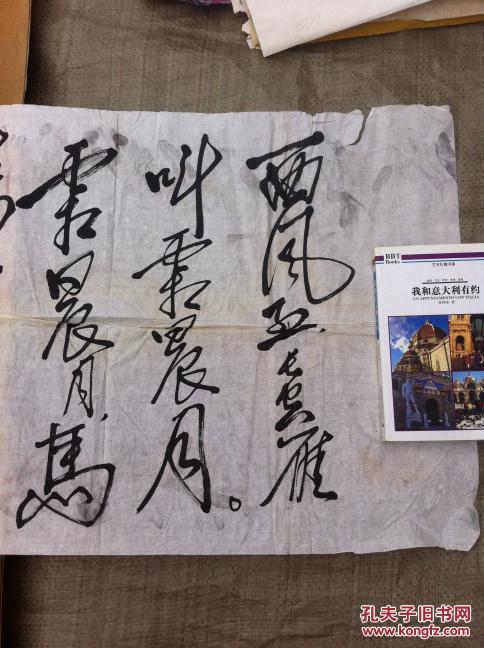 西风烈，长空雁
叫霜晨月。
霜晨月，馬
BBT
Books
艺术行旅书系
我和意大利有约
UN APPUNTAMENTO CON ITALIA
孔夫子旧书网
www.kongfz.com